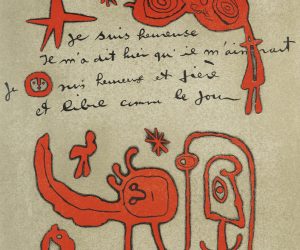 je suis heureuse
Il m'a dit hier qu'il m'aimait
Je suis heureuse et fière
et libre comme le jour